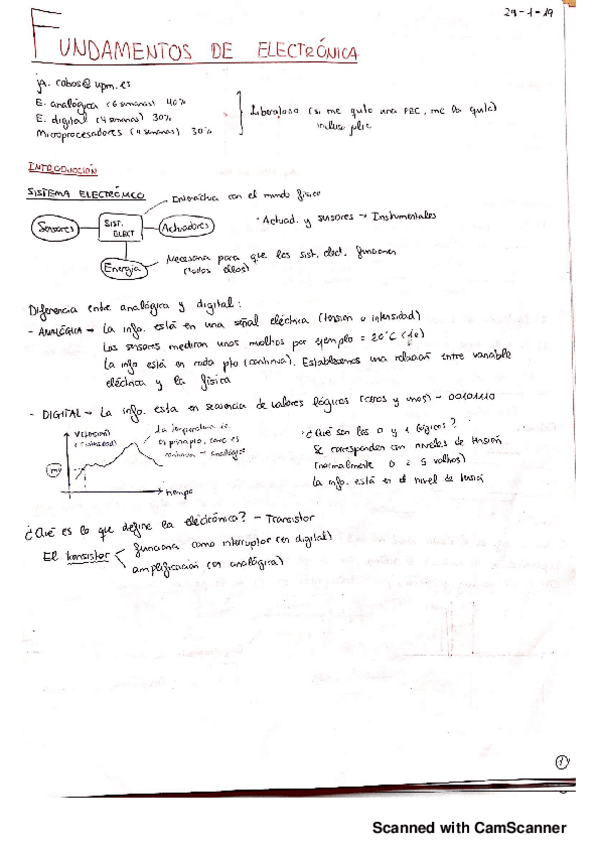 29-1-19
FUNDAMENTOS DE ELECTRÓNICA
ja.cobos@upm.es
E. analógica (6 semanas) 40%
E. digital (4 semanas) 30%
Microprocesadores (4 semanas) 30%
Liberatorio (si me quito una PEC, me la quita)
incluso plic
INTRODUCCIÓN
SISTEMA ELECTRÓNICO
Interactua con el mundo físico
Sensores
SIST. ELECT
Actuadores
· Actuad. y sensores → Instrumentales
Energía
Necesaria para que los sist. elect. funcionen
(todos ellos)
Diferencia entre analógica y digital:
- ANALÓGICA → La info. está en una señal eléctrica (tensión o intensidad)
Los sensores medirán unos mvoltios por ejemplo = 20°C (de)
La info está en cada pto (continua). Establecemos una relación entre variable
eléctrica y la física
- DIGITAL → La info. esta en secuencia de valores lógicos (ceros y unos) - 0010110
V(tensión)
I(intensidad)
mv
tiempo
La temperatura es
en principio, como es
continua → analógica
· ¿Qué son los 0 y 1 lógicos?
Se corresponden con niveles de tensión
(normalmente 0 i 5 voltios)
La info. está en el nivel de tensión
¿Qué es lo que define la electrónica? - Transistor
El transistor
funciona como interruptor (en digital)
amplificación (en analógica)
1
Scanned with CamScanner